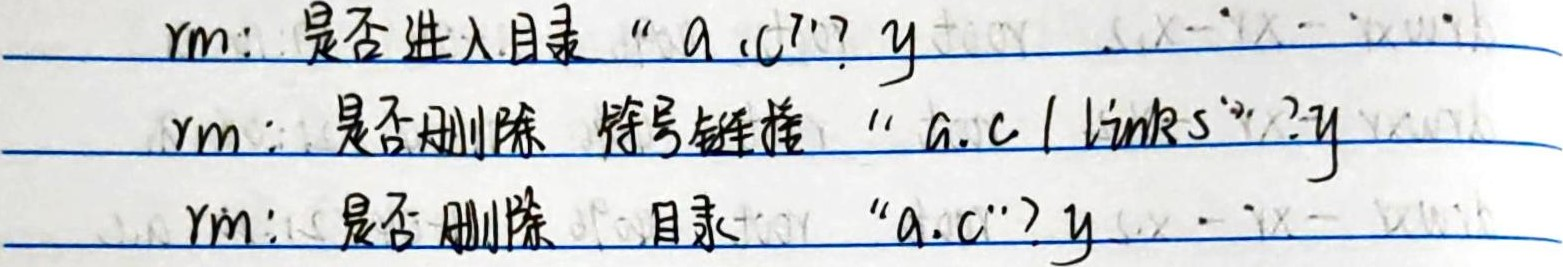 rm: 是否进入目录 “a.c”? y
rm: 是否删除 符号链接 “a.c/links”?y
rm: 是否删除 目录 “a.c”? y